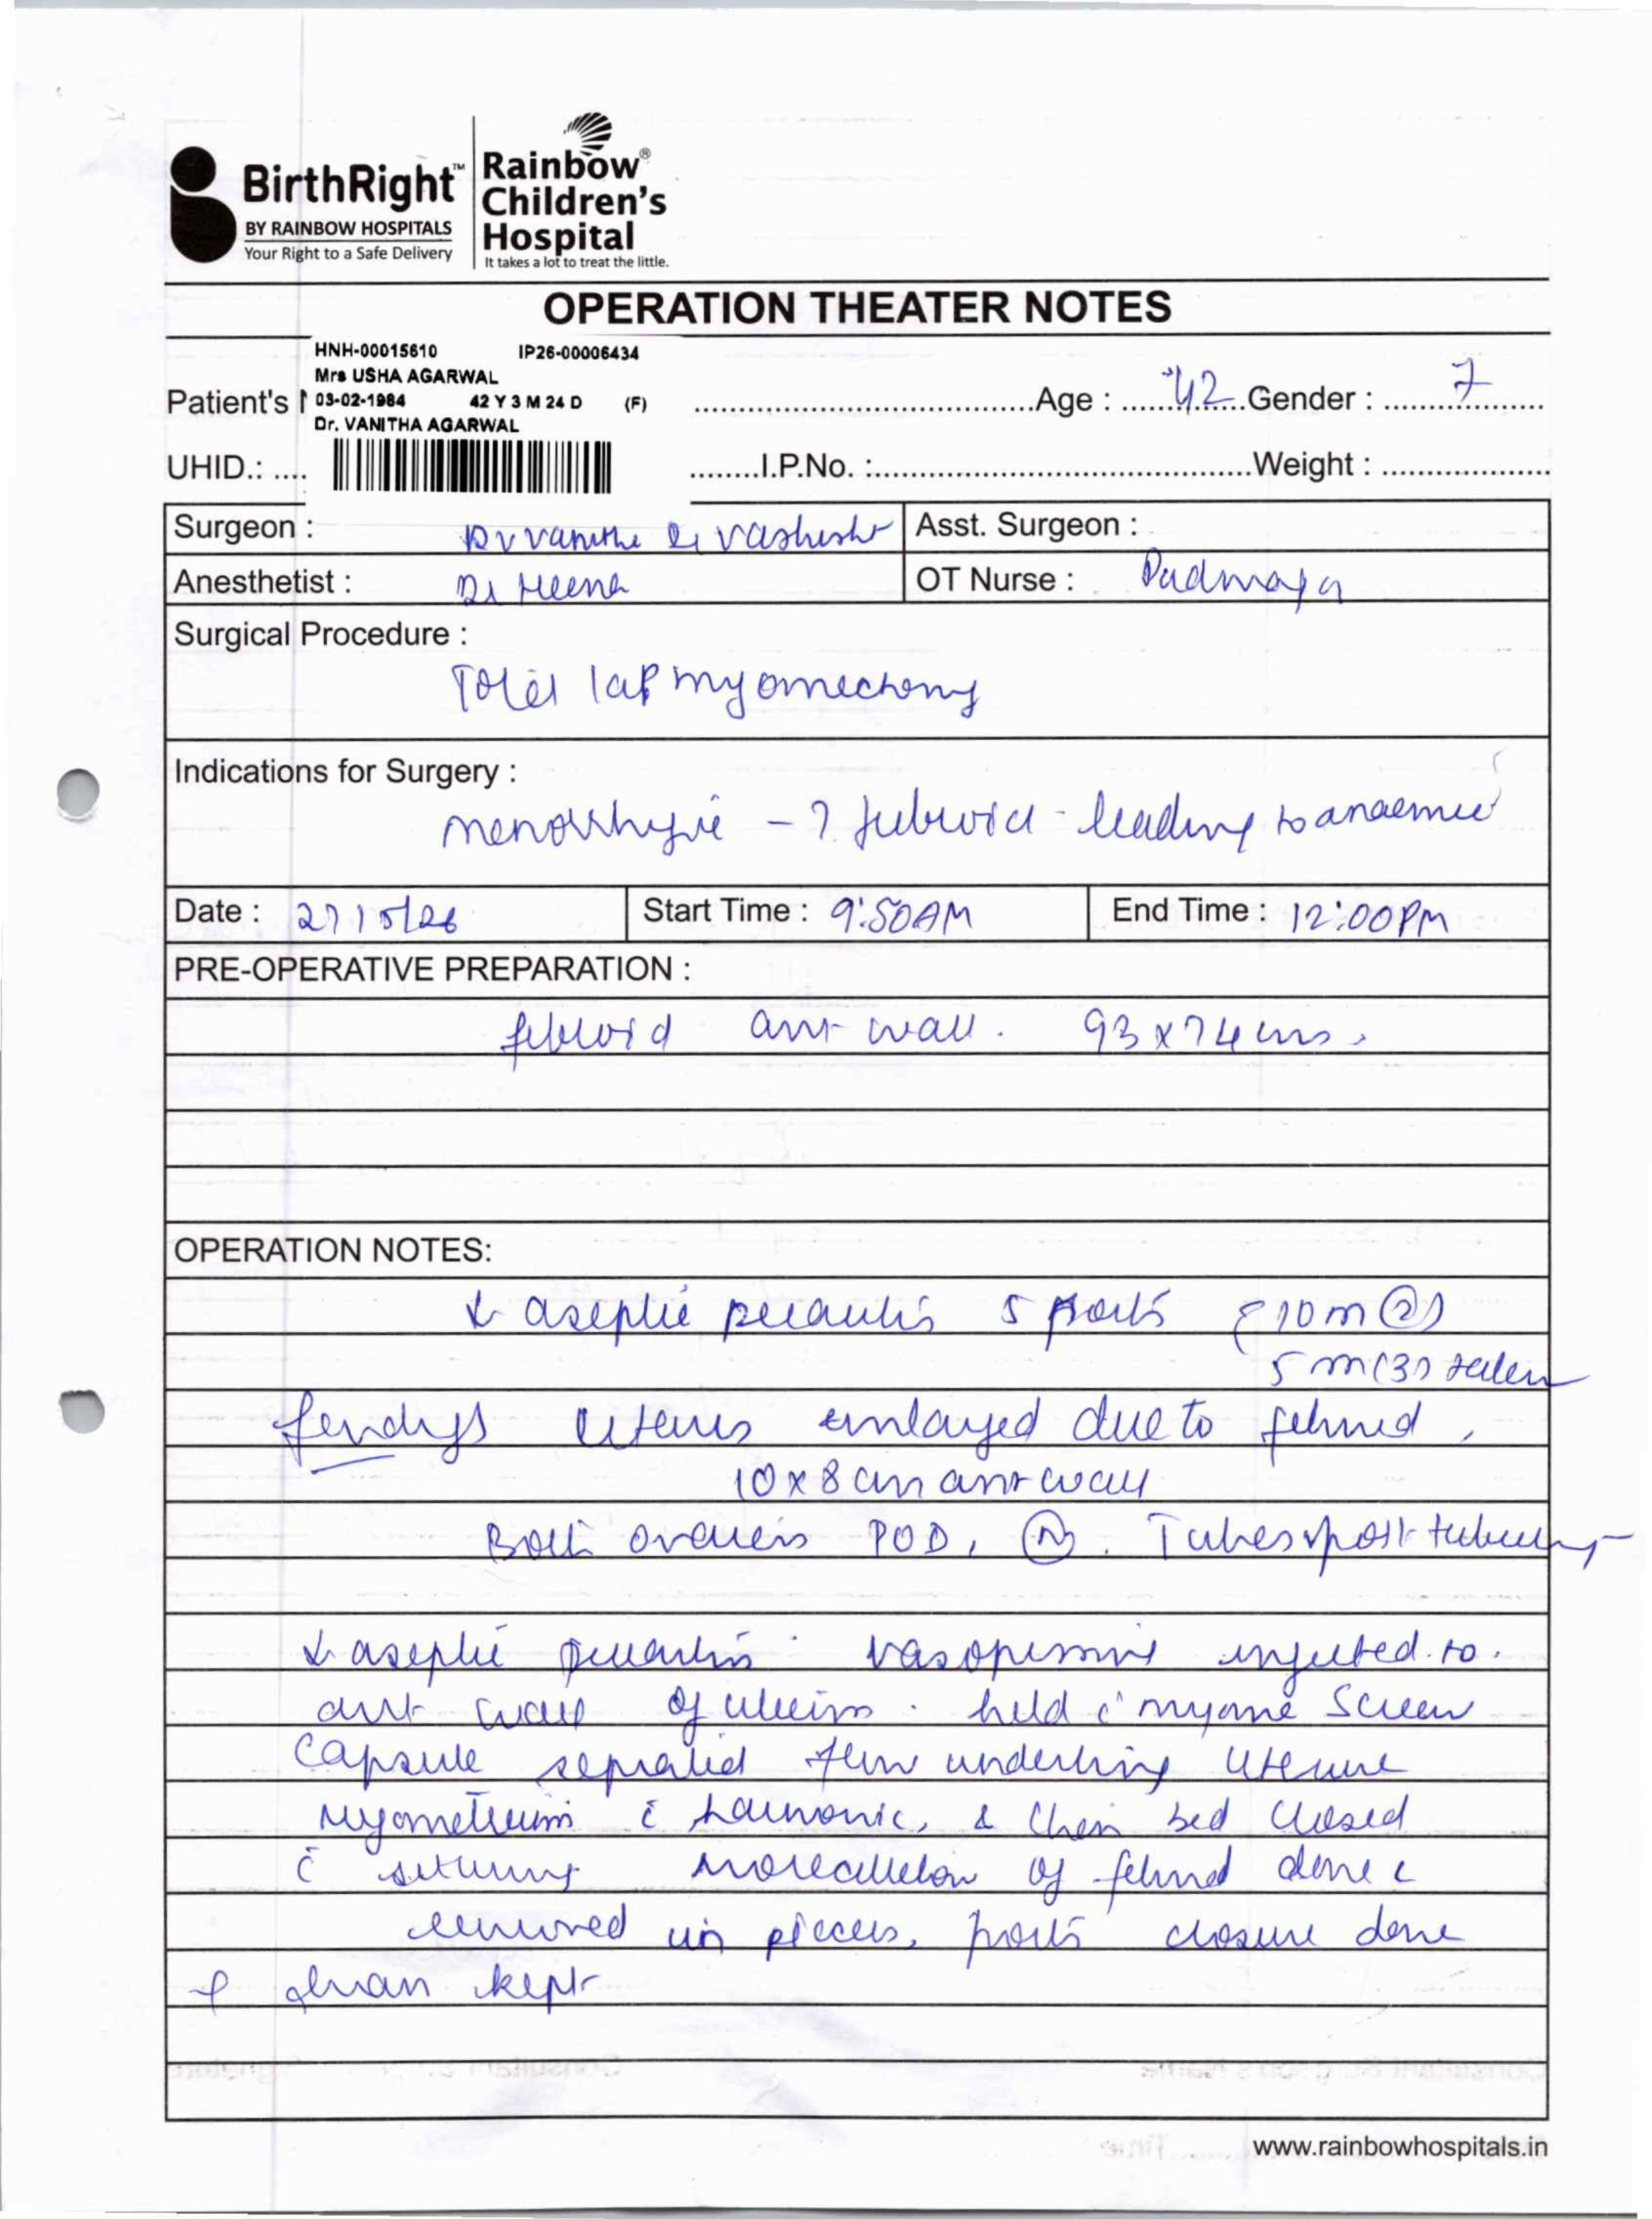 BirthRight™
BY RAINBOW HOSPITALS
Your Right to a Safe Delivery
Rainbow®
Children's
Hospital
It takes a lot to treat the little.
OPERATION THEATER NOTES
HNH-00015610 IP26-00006434
Mrs USHA AGARWAL
Patient's 03-02-1984 42 Y 3 M 24 D (F) Age : 42 Gender : 7
Dr. VANITHA AGARWAL
UHID.: .... ........I.P.No. :.......... Weight : ..........
Surgeon : Dr Vanitha Dr Vashisht Asst. Surgeon :
Anesthetist : Dr Heena OT Nurse : Padmaja
Surgical Procedure :
Total lap myomectomy
Indications for Surgery :
menorrhagia - ? fibroid - leading to anaemia
Date : 27/5/26 Start Time : 9:50AM End Time : 12:00PM
PRE-OPERATIVE PREPARATION :
fibroid ant wall. 93 x 74 cms.
OPERATION NOTES:
aseptic precautions 5 ports 10 m (2)
5 m (3) taken
findings uterus enlarged due to fibroid,
10 x 8 cm ant wall
Both ovaries POD, (N). Tubes post tubectomy
aseptic precautions vasopressin injected to
ant wall of uterus. held c̄ myoma screw
Capsule separated from underlying uterine
myometrium c̄ harmonic, & then bed closed
c̄ suturing morcellation of fibroid done &
removed in pieces, ports closure done
drain kept
www.rainbowhospitals.in